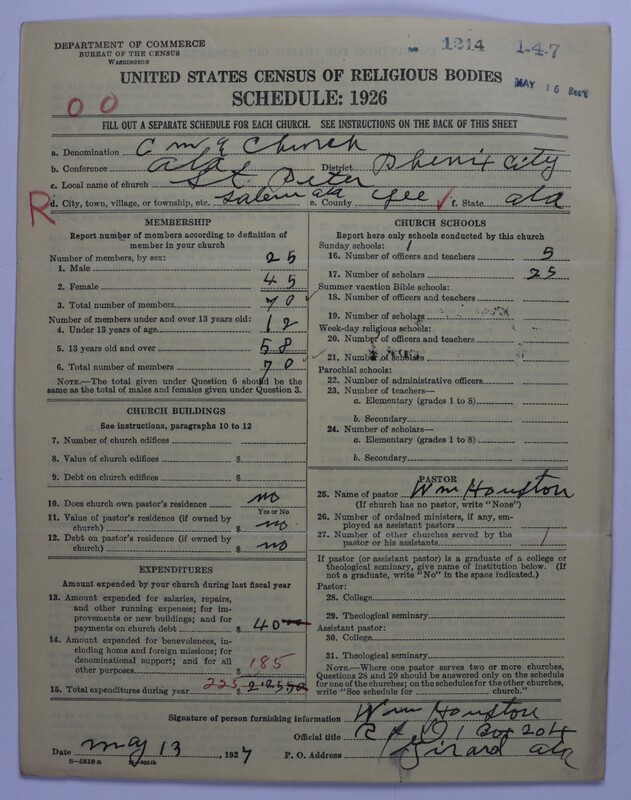 DEPARTMENT OF COMMERCE
BUREAU OF THE CENSUS
WASHINGTON
1214 1-4-7
UNITED STATES CENSUS OF RELIGIOUS BODIES
MAY 16
SCHEDULE: 1926
00
FILL OUT A SEPARATE SCHEDULE FOR EACH CHURCH. SEE INSTRUCTIONS ON THE BACK OF THIS SHEET
a. Denomination C M E Church
b. Conference Ala District Phenix City
c. Local name of church St. Peter
R d. City, town, village, or township, etc. Salem Ala e. County Lee f. State Ala
MEMBERSHIP
Report number of members according to definition of
member in your church
Number of members, by sex:
1. Male 25
2. Female 45
3. Total number of members 70
Number of members under and over 13 years old:
4. Under 13 years of age 12
5. 13 years old and over 58
6. Total number of members 70
NOTE.—The total given under Question 6 should be the
same as the total of males and females given under Question 3.
CHURCH BUILDINGS
See instructions, paragraphs 10 to 12
7. Number of church edifices
8. Value of church edifices $
9. Debt on church edifices $
10. Does church own pastor's residence no
Yes or No
11. Value of pastor's residence (if owned by
church) $ no
12. Debt on pastor's residence (if owned by
church) $ no
EXPENDITURES
Amount expended by your church during last fiscal year
13. Amount expended for salaries, repairs,
and other running expenses; for im-
provements or new buildings; and for
payments on church debt $ 40
14. Amount expended for benevolences, in-
cluding home and foreign missions; for
denominational support; and for all
other purposes $ 185
15. Total expenditures during year 225 $
CHURCH SCHOOLS
Report here only schools conducted by this church
Sunday schools: 1
16. Number of officers and teachers 5
17. Number of scholars 25
Summer vacation Bible schools:
18. Number of officers and teachers
19. Number of scholars
Week-day religious schools:
20. Number of officers and teachers
21. Number of scholars
Parochial schools:
22. Number of administrative officers
23. Number of teachers—
a. Elementary (grades 1 to 8)
b. Secondary
24. Number of scholars—
a. Elementary (grades 1 to 8)
b. Secondary
PASTOR
25. Name of pastor Wm Houston
(If church has no pastor, write "None")
26. Number of ordained ministers, if any, em-
ployed as assistant pastors
27. Number of other churches served by the
pastor or his assistants 1
If pastor (or assistant pastor) is a graduate of a college or
theological seminary, give name of institution below. (If
not a graduate, write "No" in the space indicated.)
Pastor:
28. College
29. Theological seminary
Assistant pastor:
30. College
31. Theological seminary
NOTE.—Where one pastor serves two or more churches,
Questions 28 and 29 should be answered only on the schedule
for one of the churches; on the schedules for the other churches,
write "See schedule for church."
Signature of person furnishing information Wm Houston
Official title R F D 1 Box 204
Date May 13, 1927 P. O. Address Girard Ala